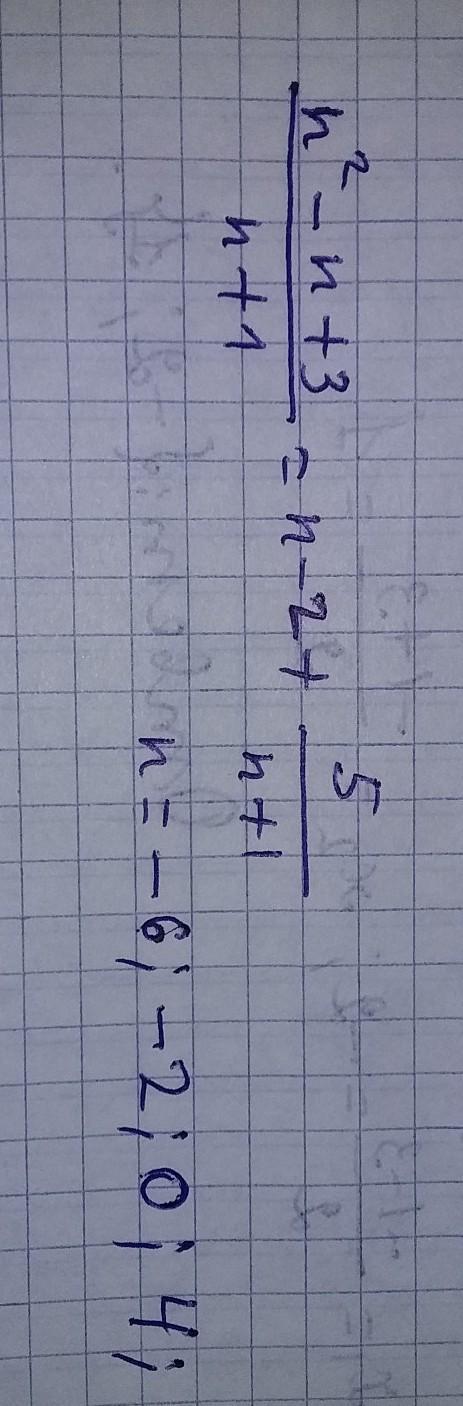 n² - n + 3 / n + 1 = n - 2 + 5 / n + 1
n = - 6; - 2; 0; 4;